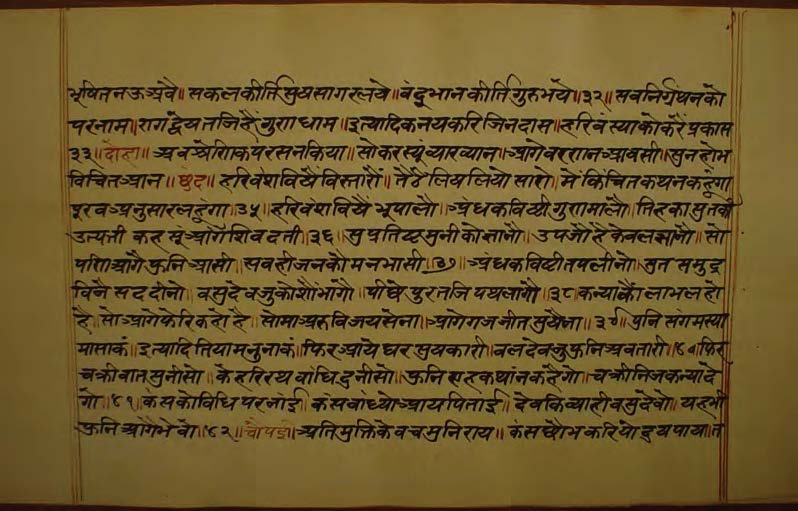 भूषितनऊअवै॥ सकलकीर्तिसुयसागरलवे॥ वंदूभानकीर्तिगुरुभये॥३२॥ सवनिर्ग्रंथनको
परनाम॥ रागद्वेयतजिहैंगुणधाम॥ इत्यादिकनयकरिजिनदास॥ हरिवंस्याकोकरेंप्रकास
३३॥ दोहा॥ अवश्रेणिकपरसनकिया॥ सोकरस्यूंव्याख्यान॥ आगेवरणनआवसी॥ सुनहोभ
विचितआन॥ छंद॥ हरिवंशविषैंविस्तारौं॥ तैठैलियलियोसारो॥ मेंकिंचितकथनकहूंगा
पूरवअनुसारलहूंगा॥३५॥ हरिवंशविषैंभूपालौ॥ अंधकविष्टीगुणमालौ॥ तिहकासुतकी
उत्पत्ती कहसूंआगैशिवदत्ती॥३६॥ सुप्रतिष्टमुनीकोज्ञानौ॥ उपजौहैकेवलज्ञानौ॥ सो
पणिआगैफुनिआसी॥ सवहीजनकोमनभासी॥३७॥ अंधकविष्टीतपलीनो॥ सुतसमुद्र
विजैसददीनो॥ वसुदेवजुकोशौभागौ॥ पीछेपुरतजिपथलागौ॥३८॥ कन्याकौलाभलहो
है॥ सोआगेफेरिकहोहै॥ सोमाअरुविजयसेना॥ आगेगजजीतसुयैना॥३९॥ पुनिसंगमस्या
मासाकं॥ इत्यादितियामनुनाकं॥ फिरआयेघरसुयकारी॥ वलदेवजुफुनिअवतारी॥४०॥ फिर
चक्रीवातसुनीसो॥ केहरिरथवांधिदुनीसो॥ फुनिएहकथांनकहैगो॥ चक्रीनिजकन्यादे
गो॥४१॥ कंसकोविधिपरनांई॥ कंसवांध्योआयपिताई॥ देवकिव्याहीवसुदेवो॥ यहभी
फुनिआगैभेवो॥४२॥ चौपई॥ अतिमुक्तिकेवचमुनिराय॥ कंसछोभकरियोदुयपाय॥ त